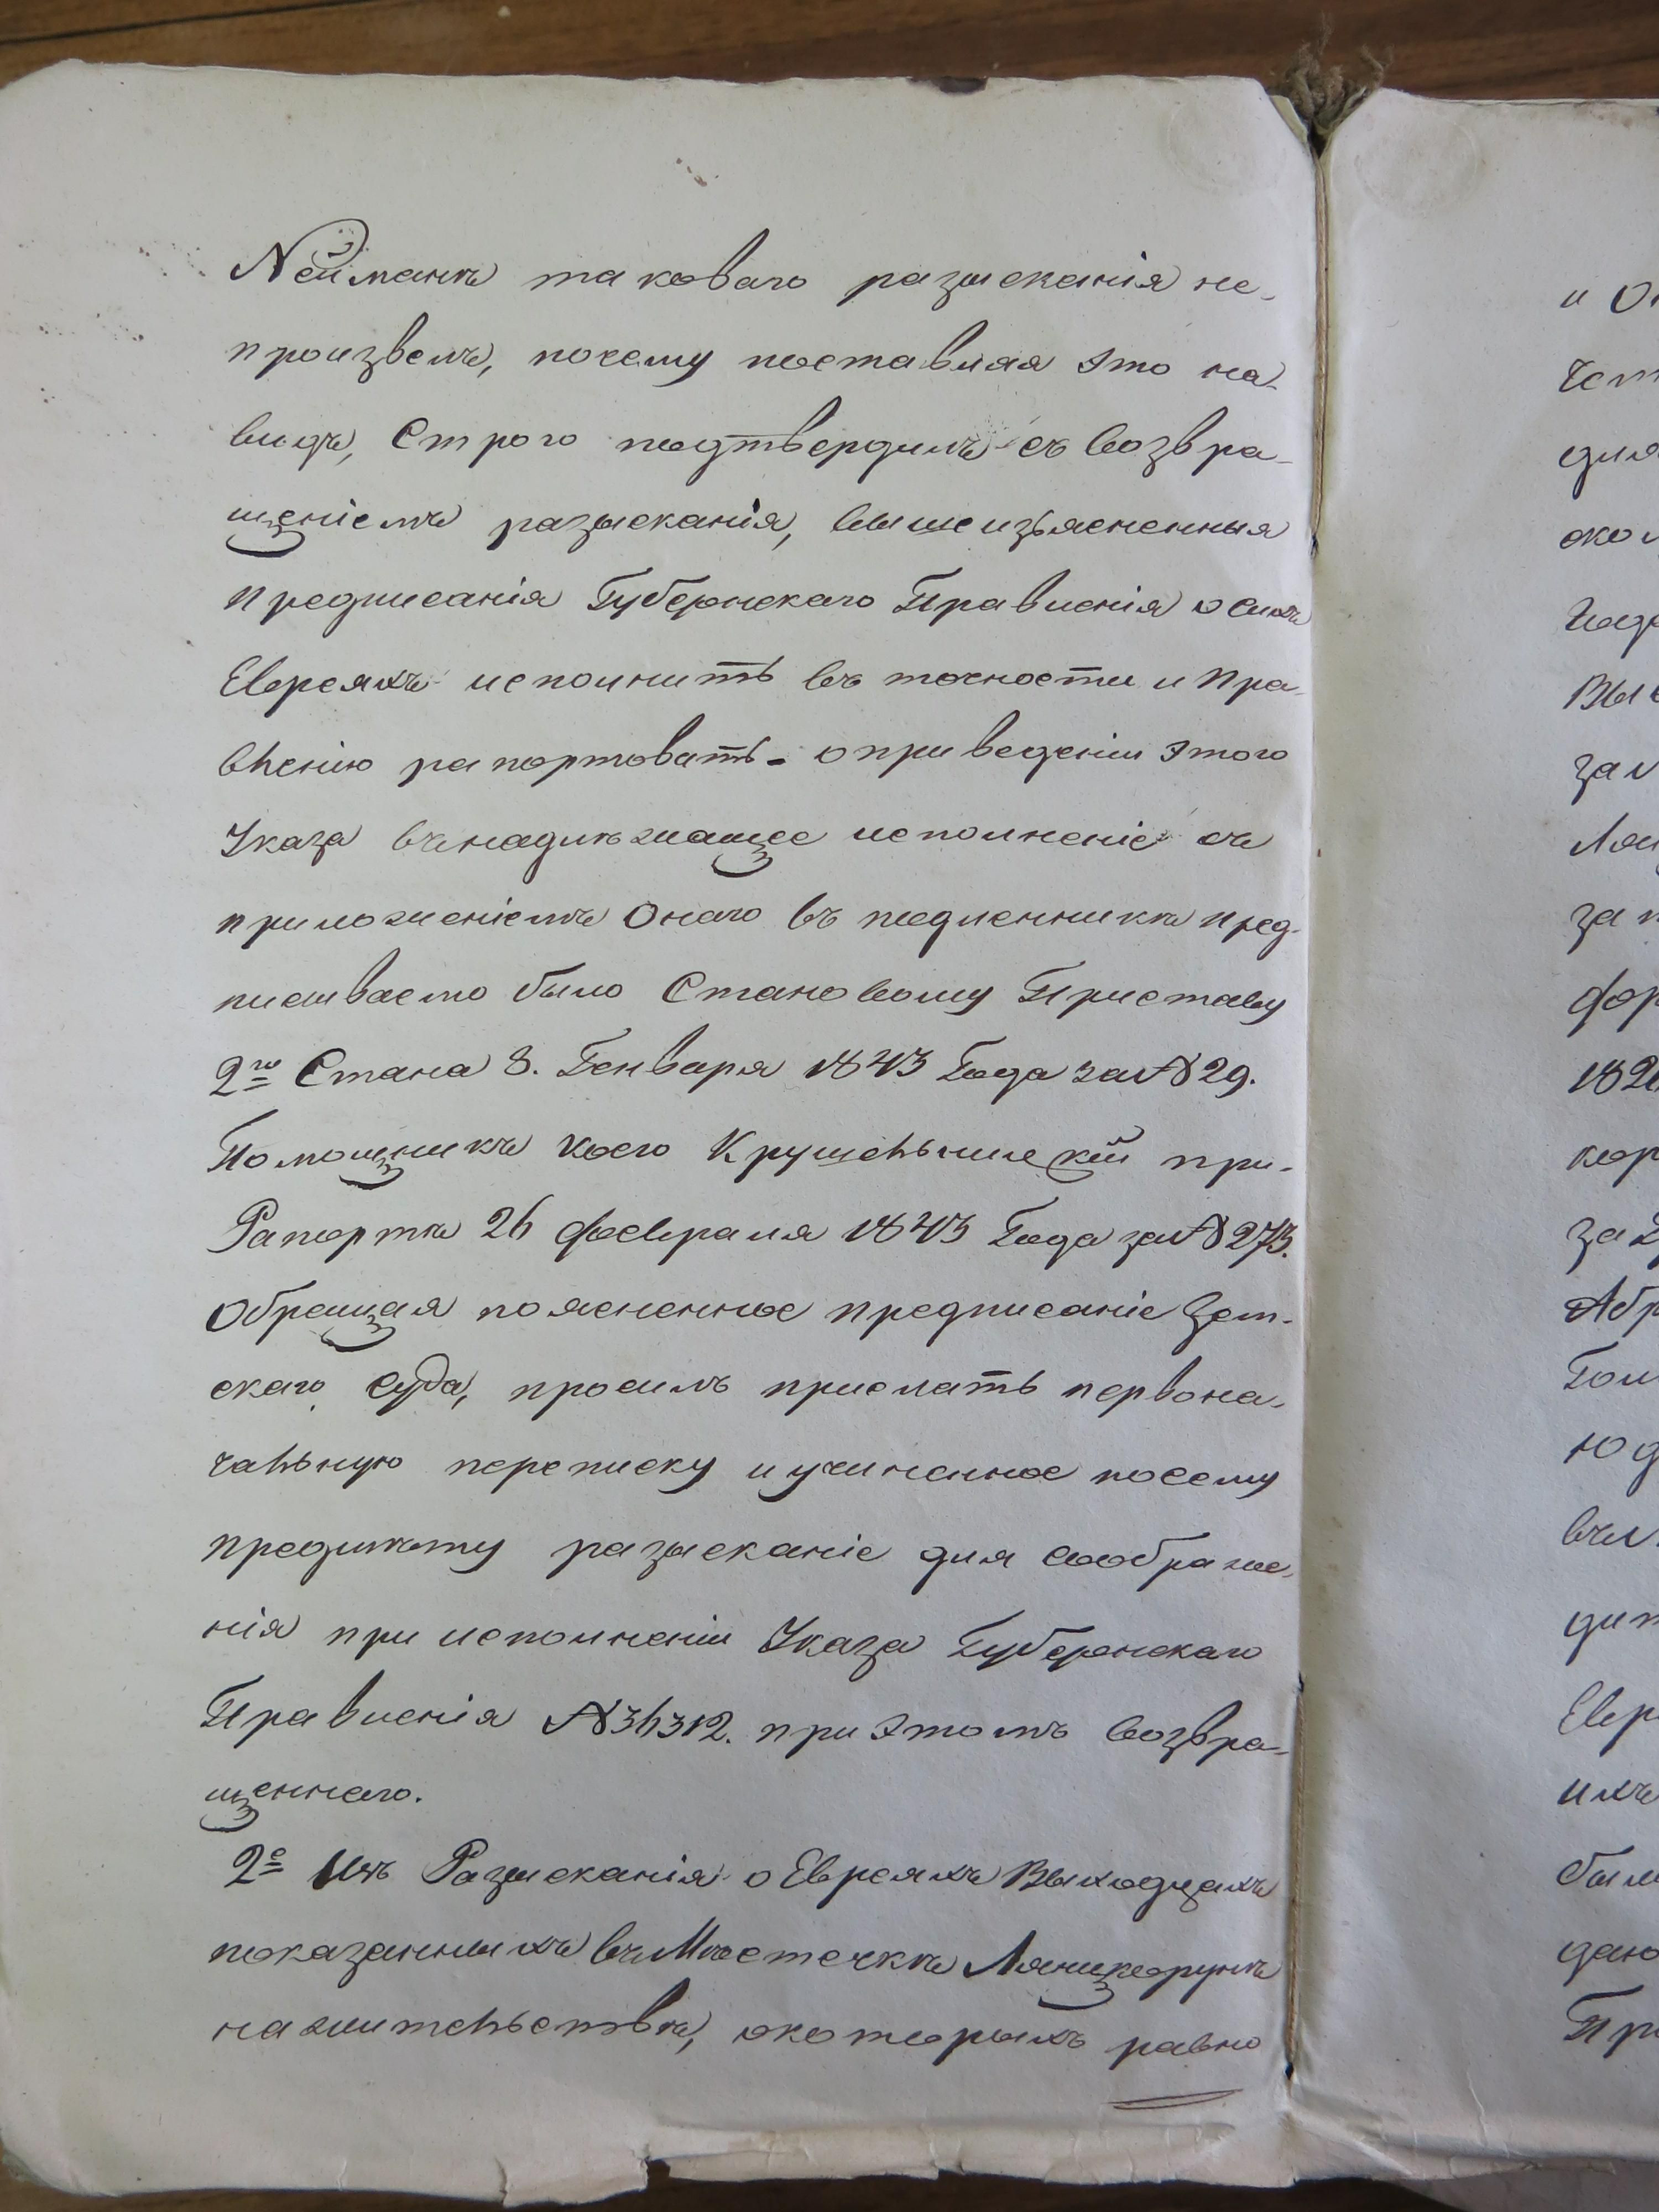 Нейманъ таковаго разысканія не-
произвелъ, почему поставляя это на-
видъ, Строго подтвердилъ съ возвра-
щеніемъ разысканія, вышеизъясненныя
предписанія Губернскаго Правленія о сихъ
Евреяхъ исполнить въ точности и Пра-
вленію рапортовать - о приведеніи этого
Указа въ надлежащее исполненіе съ
приложеніемъ Онаго въ подленникѣ пред-
писываемо было Становому Приставу
2го Стана 8. Генваря 1843 Года за № 29.
Помощникъ коего Крушельницкій при-
Рапортѣ 26 февраля 1843 Года за № 273.
Обращая поясненное предписаніе Зем-
скаго Суда, просилъ прислать первона-
чальную переписку и учиненное посему
предмѣту разысканіе для соображе-
нія при исполненіи Указа Губернскаго
Правленія № 36312. при этомъ возвра-
щеннаго.
2е Изъ Разысканія о Евреяхъ Выходцахъ
показанныхъ въ Мѣстечкѣ Лянцкорунѣ
на жительствѣ, о которыхъ равно
и О
чет
для
око
Года
Вые
за
за
фор
182
кор
за 2
Абр
Гол
Евр
ихъ
был
даю
Пр